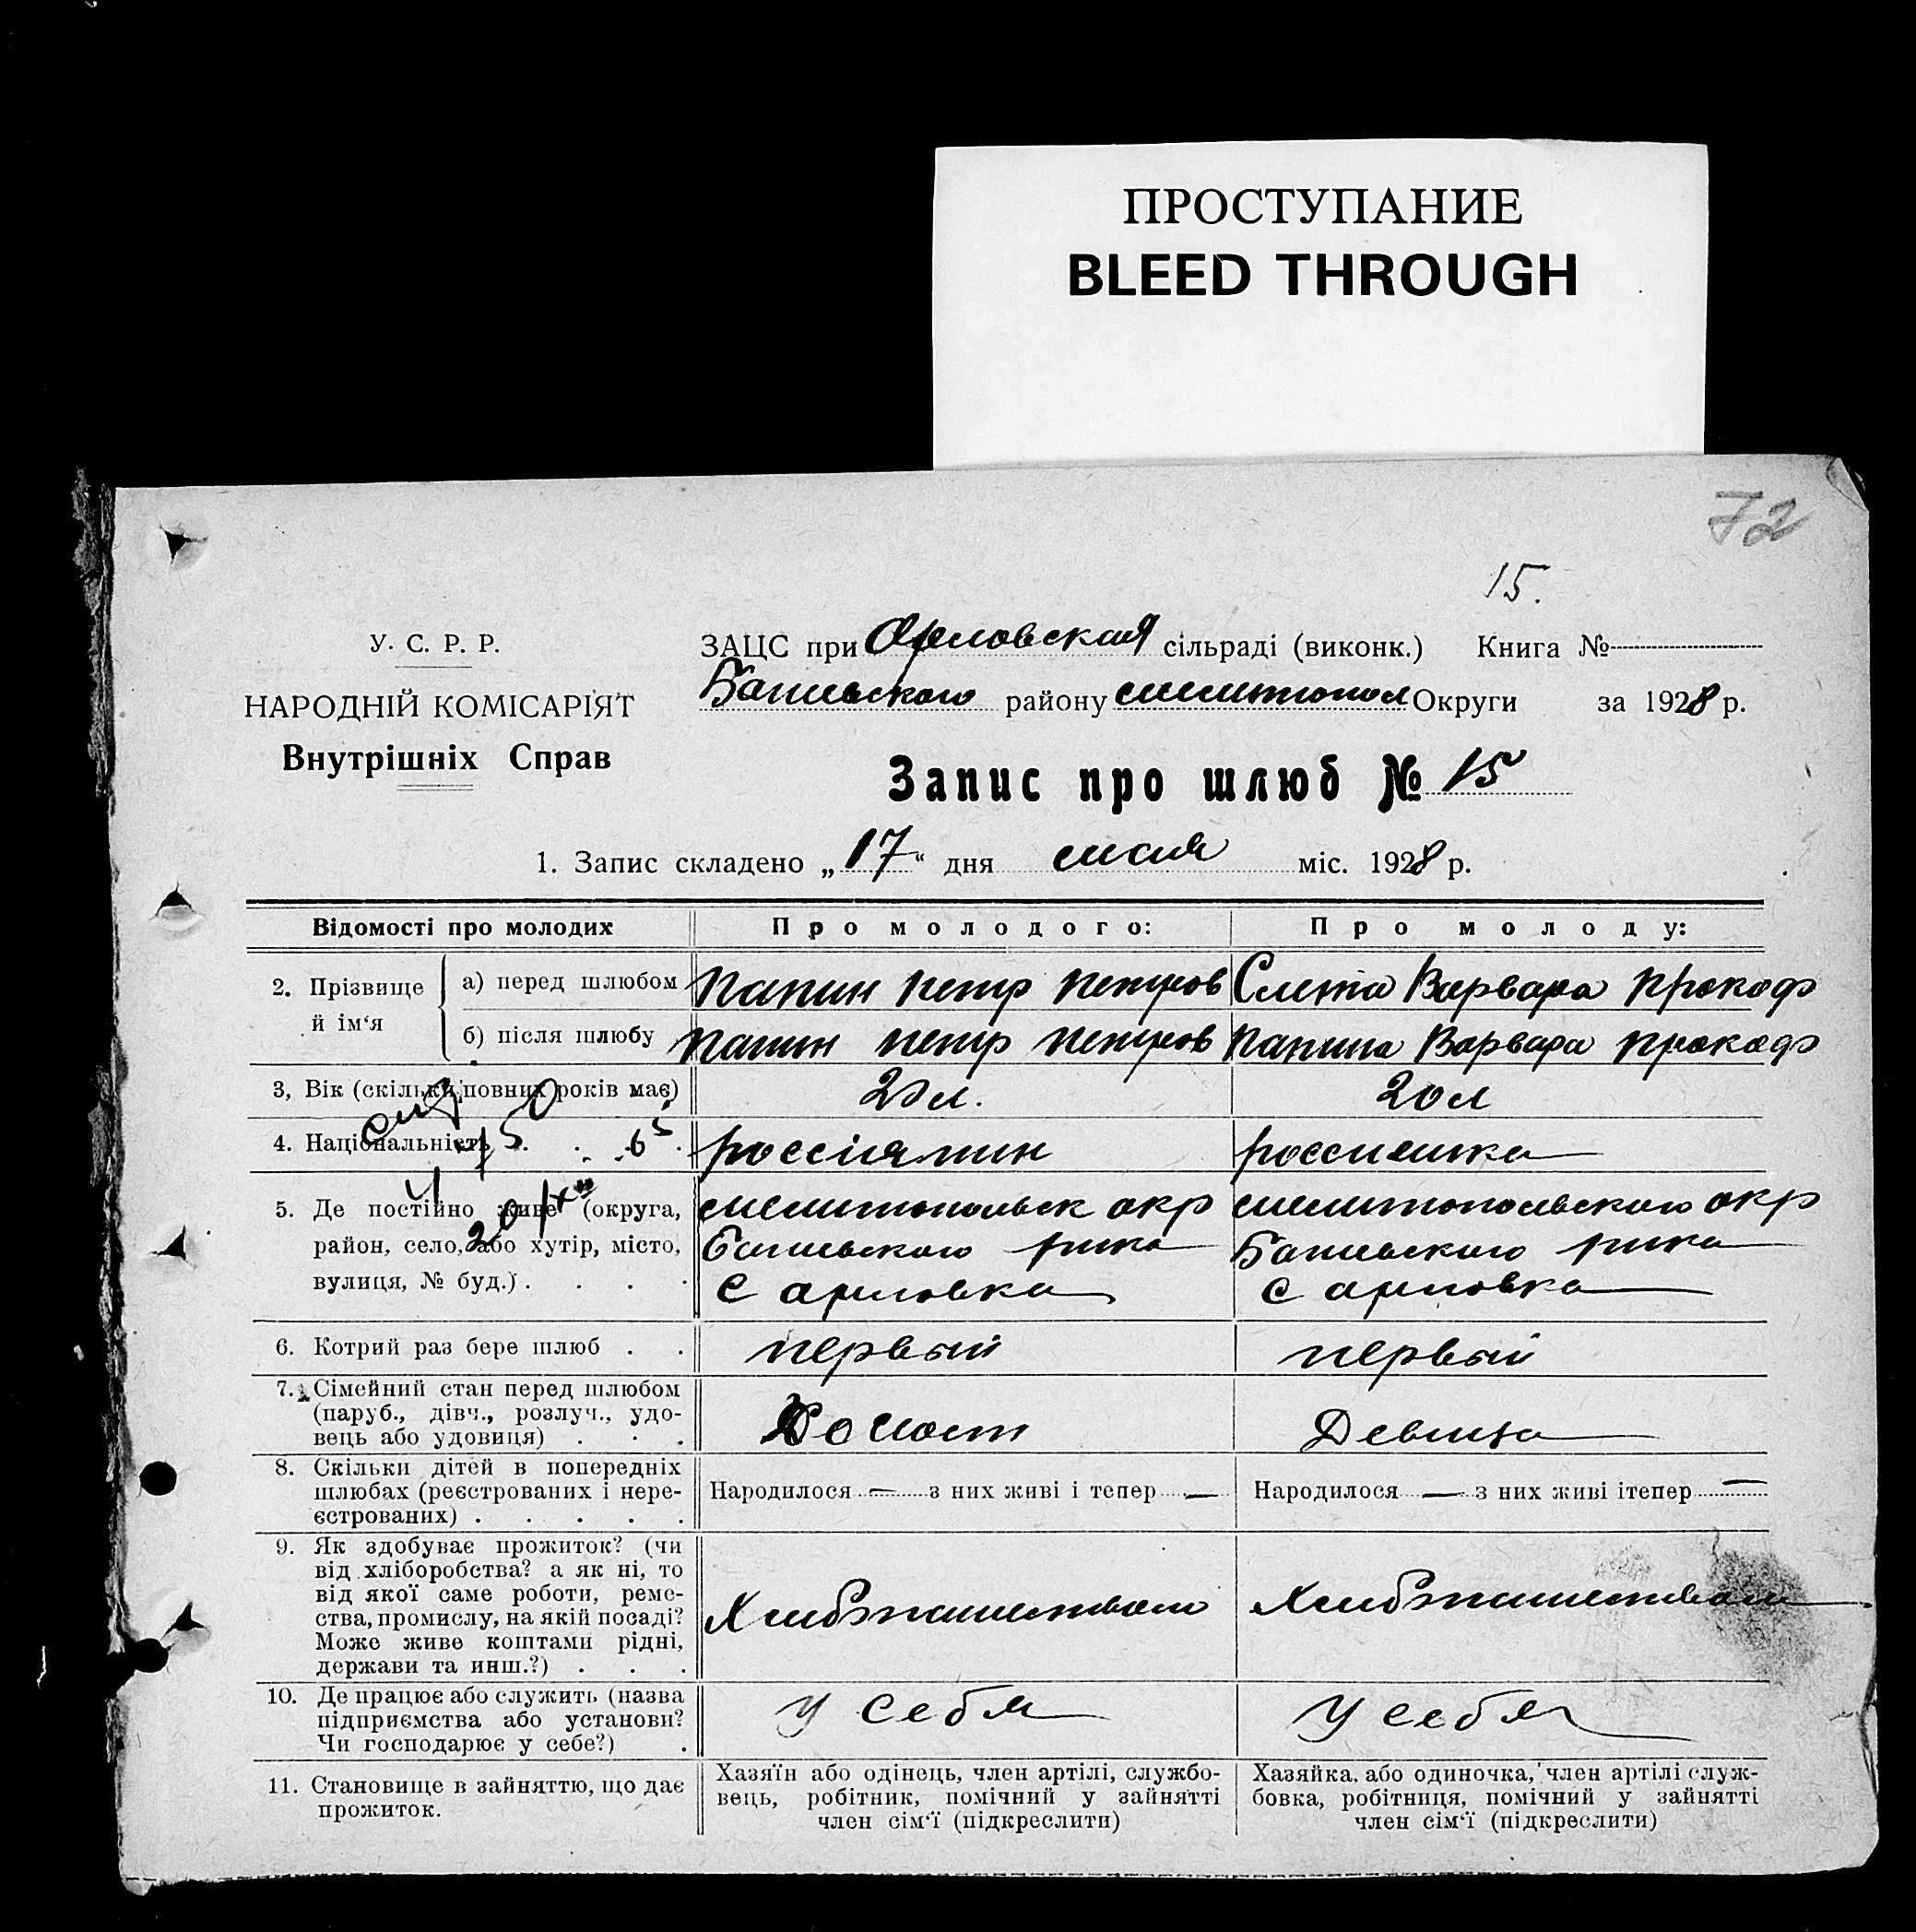 ПРОСТУПАНИЕ
BLEED THROUGH
72
15.
У. С. Р. Р.
НАРОДНІЙ КОМІСАРІЯТ
Внутрішніх Справ
ЗАЦС при Орловская сільраді (виконк.) Книга №
району Округи за 1928 р.
Запис про шлюб № 15
1. Запис складено „17“ дня мая міс. 1928 р.
Відомості про молодих Про молодого: Про молоду:
2. Прізвище й ім‘я
а) перед шлюбом Папин Петр Петров Слета Варвара Прокоф
б) після шлюбу Папин Петр Петров Папина Варвара Прокоф
3, Вік (скільки повних років має) 20 л. 20 л
4. Національність россиянин
5. Де постійно живе (округа, мелитопольск окр мелитопольского окр
район, село, або хутір, місто, рика рика
вулиця, № буд.) с арловка с арловка
6. Котрий раз бере шлюб первый первый
7. Сімейний стан перед шлюбом
(паруб., дівч., розлуч., удо-
вець або удовиця) Холост Девица
8. Скільки дітей в попередніх
шлюбах (реєстрованих і нере-
єстрованих)
Народилося — з них живі і тепер — Народилося — з них живі ітепер —
9. Як здобуває прожиток? (чи
від хліборобства? а як ні, то
від якої саме роботи, реме-
ства, промислу, на якій посаді?
Може живе коштами рідні,
держави та инш.?)
Хлебопашеством Хлебопашеством
10. Де працює або служить (назва
підприємства або установи?
Чи господарює у себе?)
у себя у себя
11. Становище в зайняттю, що дає
прожиток.
Хазяїн або одінець, член артілі, службо-
вець, робітник, помічний у зайнятті
член сім‘ї (підкреслити)
Хазяйка, або одиночка, член артілі служ-
бовка, робітниця, помічний у зайнятті
член сім‘ї (підкреслити)